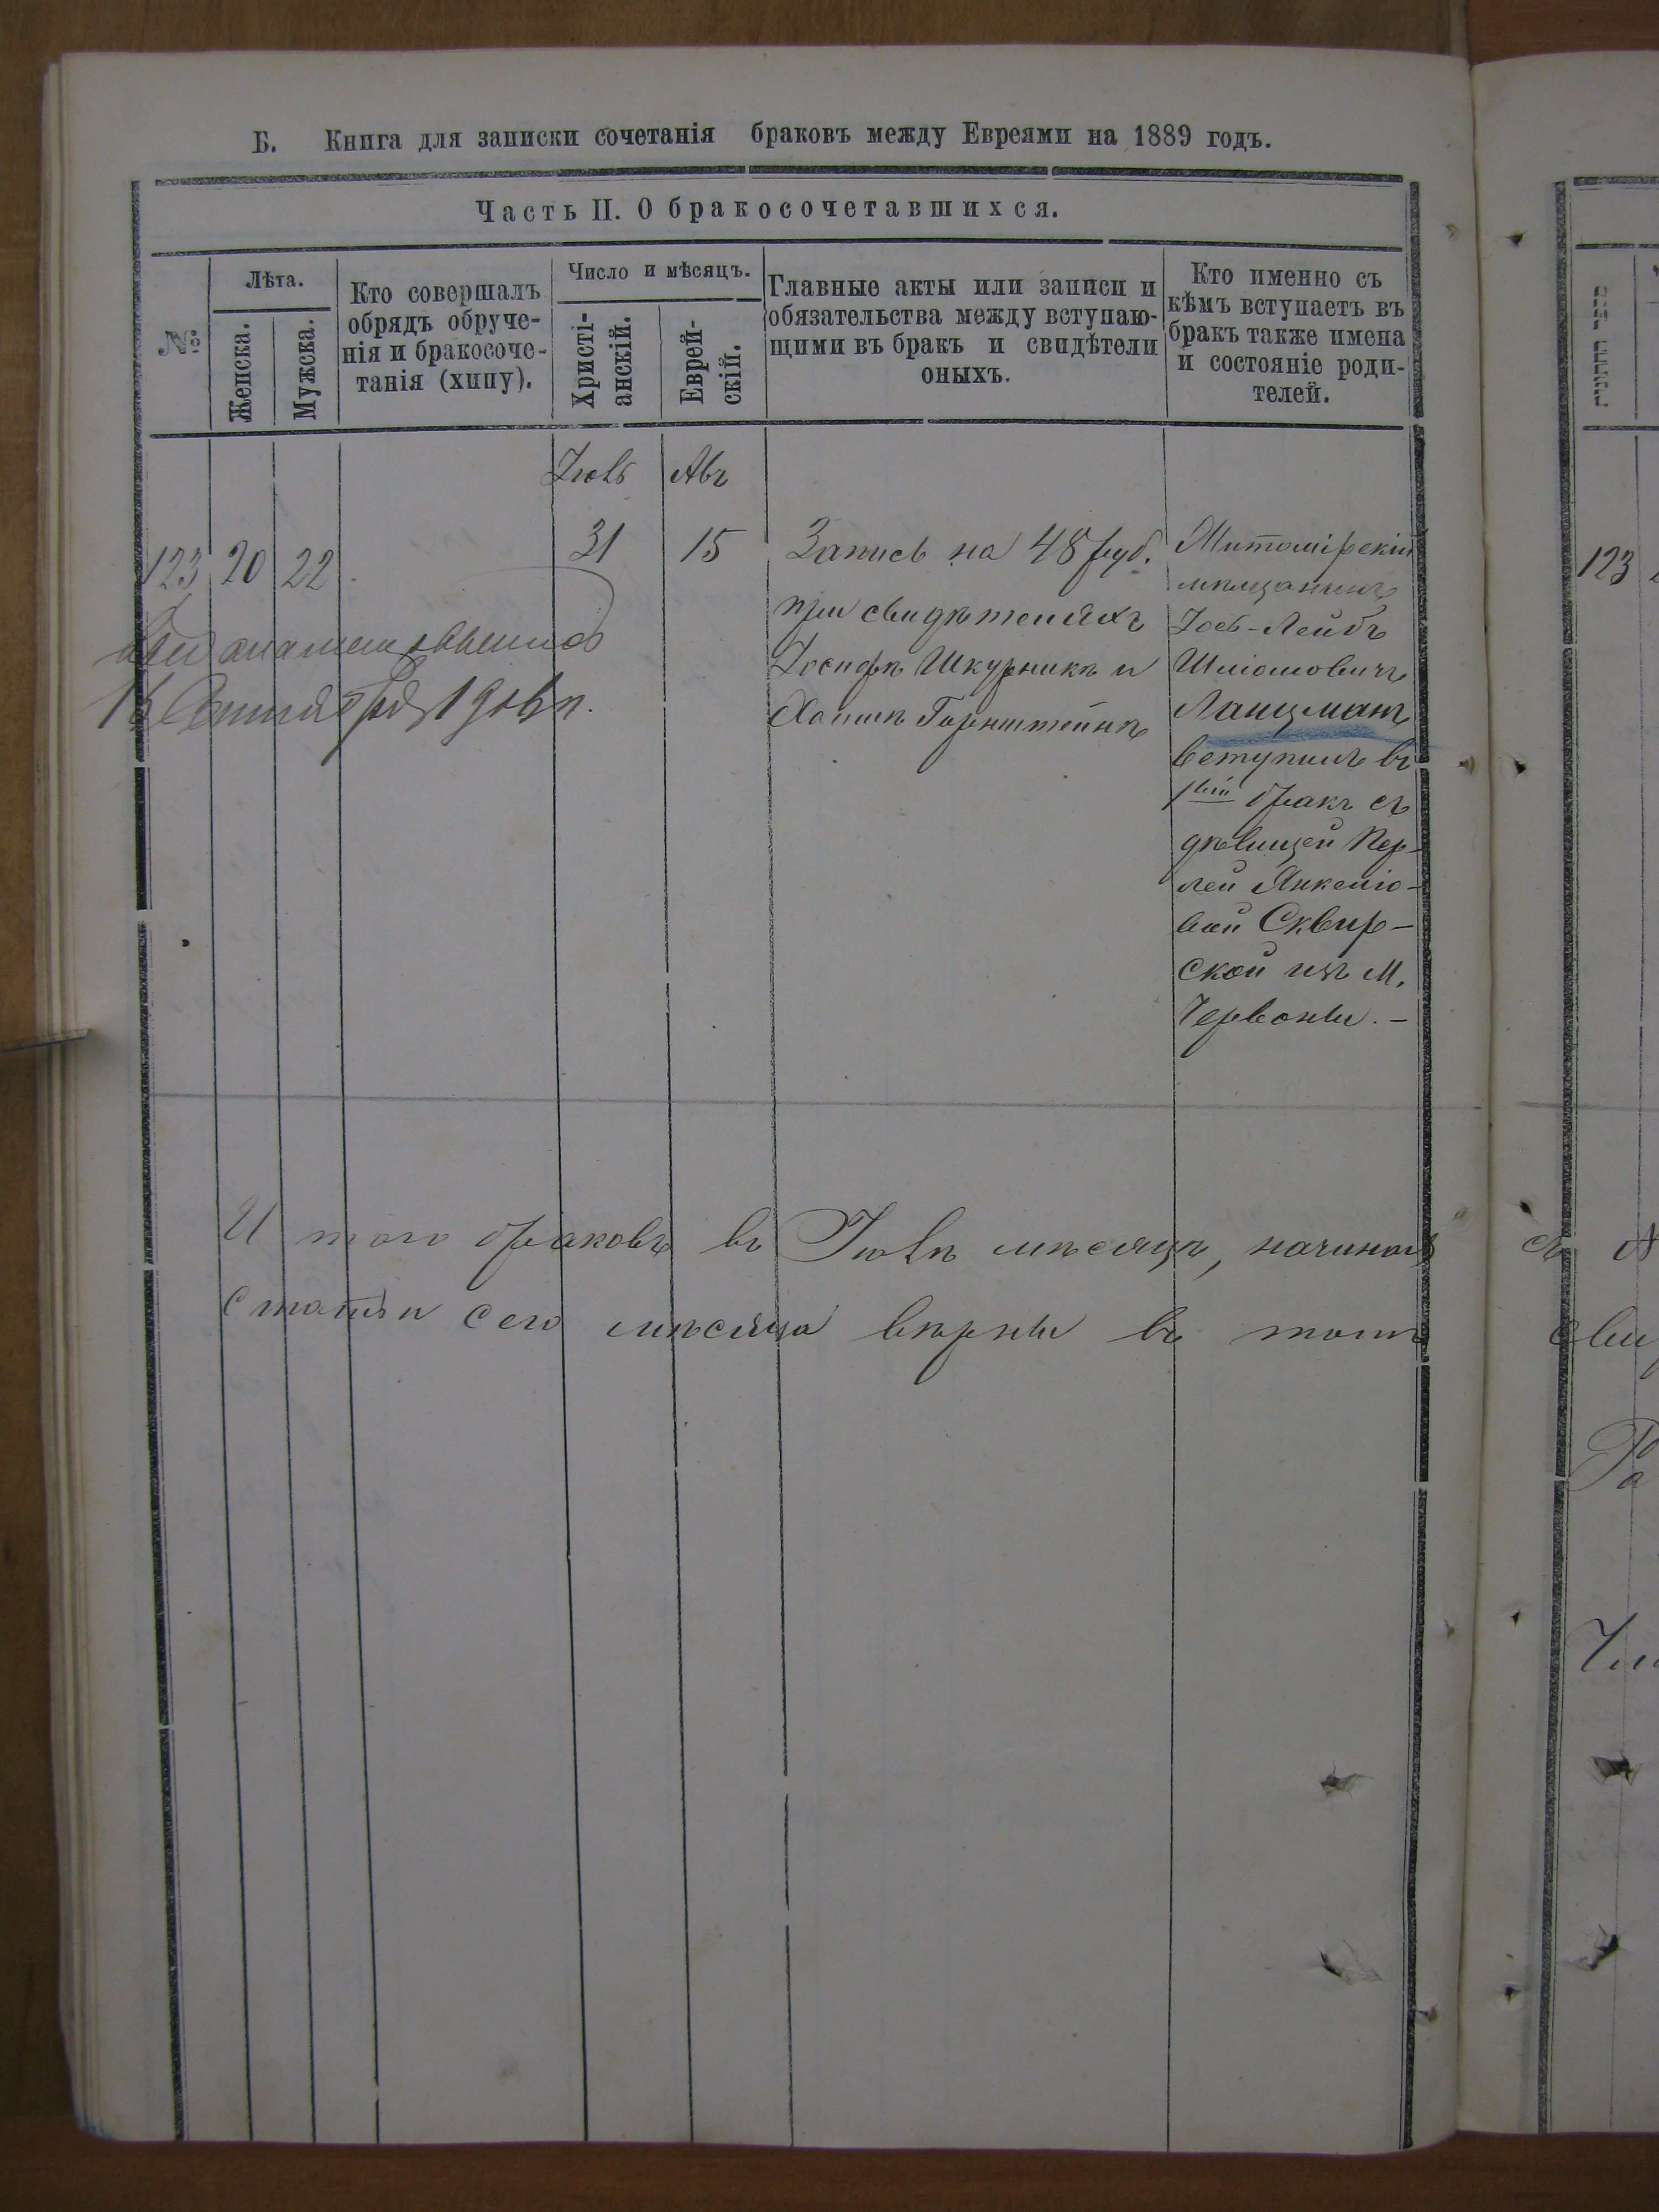 Б. Книга для записки сочетанія браковъ между Евреями на 1889 годъ.
Часть II. О бракосочетавшихся.
№
Лѣта.
Женска.
Мужска.
Кто совершалъ
обрядъ обруче-
нія и бракосоче-
танія (хипу).
Число и мѣсяцъ.
Христі-
анскій.
Еврей-
скій.
Главные акты или записи и
обязательства между вступаю-
щими въ бракъ и свидѣтели
оныхъ.
Кто именно съ
кѣмъ вступаетъ въ
бракъ также имена
и состояніе роди-
телей.
Іюль Авъ
123 20 22 31 15
Запись на 48 руб.
при свидѣтеляхъ
Іосифѣ Шкурникѣ и
Хаимѣ Горнштейнѣ
Житомірскій
мѣщанинъ
Іось-Лейбъ
Шліомовичъ
Ланцманъ
вступилъ въ
1вый бракъ съ
дѣвицей Пер-
лей Янкеліо-
вой Сквир-
ской изъ м.
Червоны. -
Итого браковъ въ Іюлѣ мѣсяцѣ, начиная
статьи сего мѣсяца вѣрны въ томъ
123